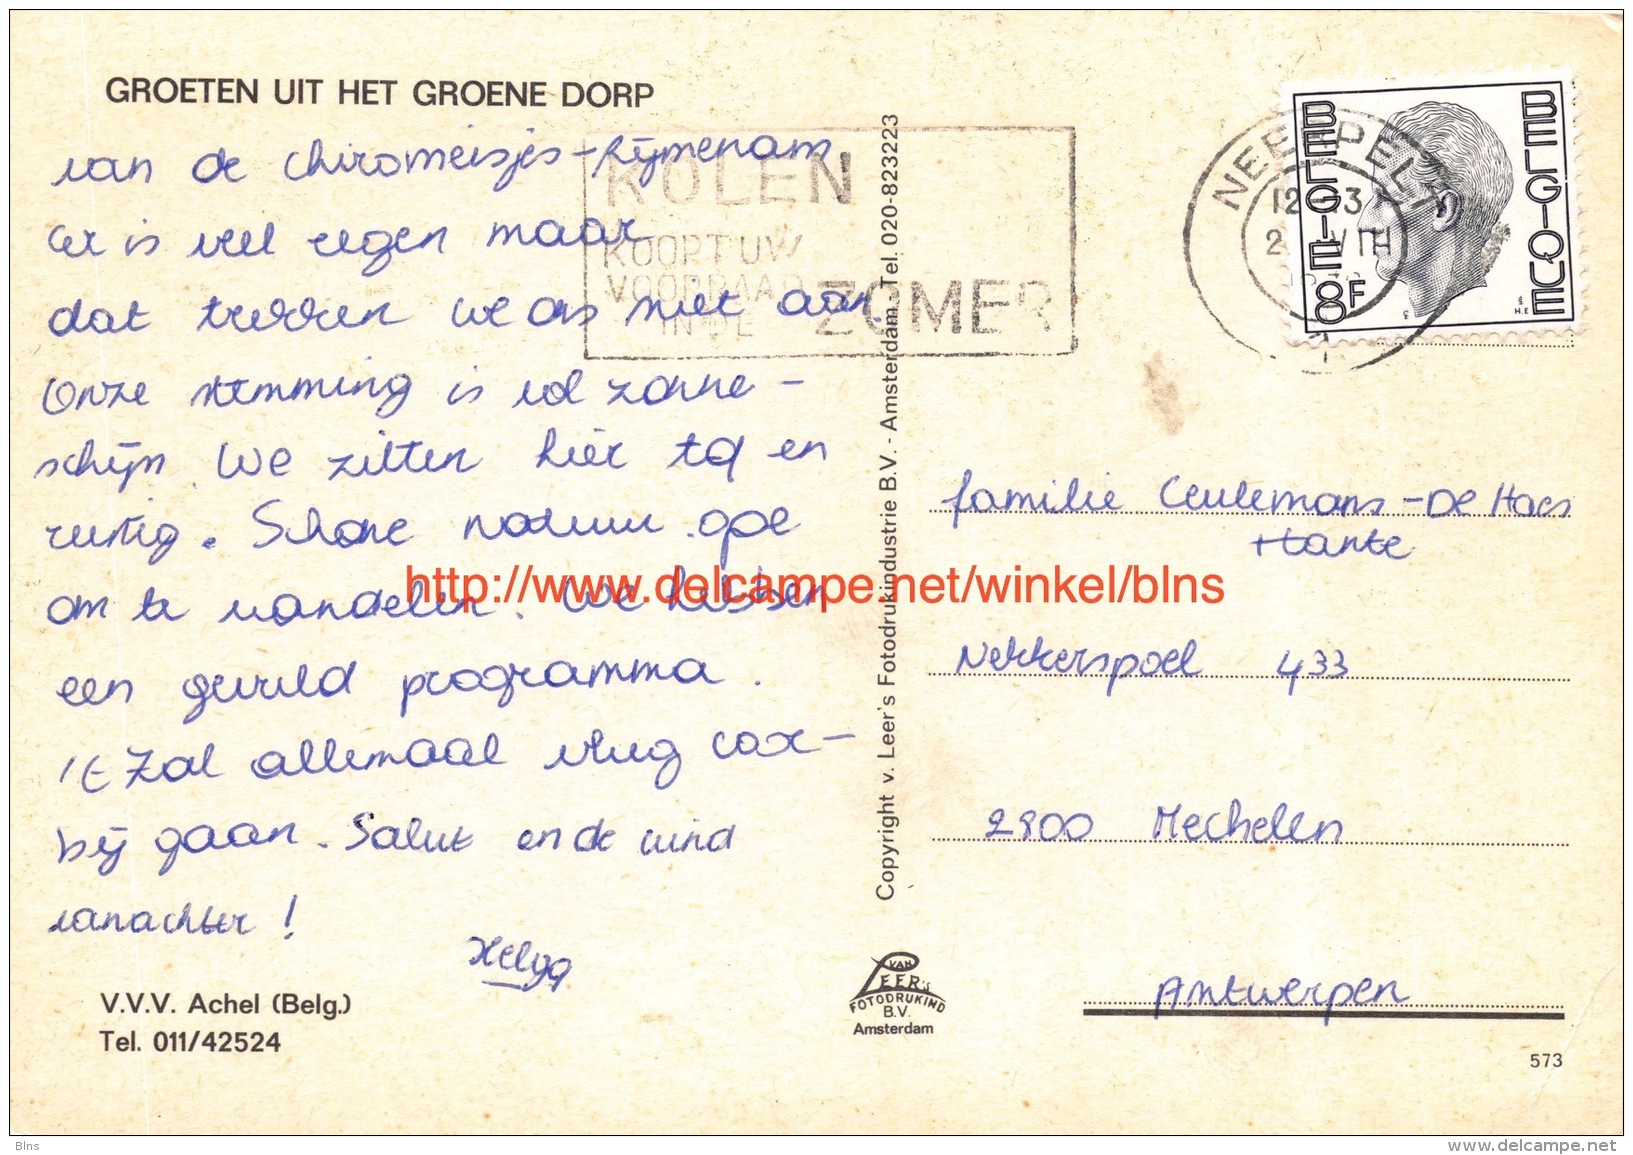 GROETEN UIT HET GROENE DORP
van de chiromeisjes - Rijmenam
Er is veel regen maar
dat trekken we ons niet aan.
Onze stemming is vol zonne-
schijn. We zitten hier tof en
rustig. Schone natuur
om te wandelen. We hebben
een gevuld programma.
't Zal allemaal vlug voor-
bij gaan. Salut en de wind
vanachter!
Helga
V.V.V. Achel (Belg.)
Tel. 011/42524
KOLEN
KOOPT UW
VOORRAAD
IN DE
ZOMER
Copyright v. Leer's Fotodrukindustrie B.V. - Amsterdam Tel. 020-823223
NEERPELT
BELGIE
BELGIQUE
8F
familie Ceulemans - De Haes
+ tante
Nekkerspoel 433
2800 Mechelen
Antwerpen
VAN
LEER'S
FOTODRUKIND
B.V.
Amsterdam
573
http://www.delcampe.net/winkel/blns
Blns
www.delcampe.net